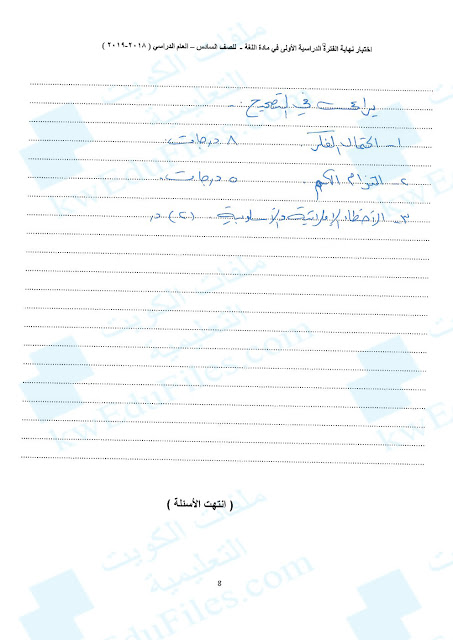 اختبار نهاية الفترة الدراسية الأولى في مادة اللغة - للصف السادس – العام الدراسي ( ٢٠١٨-٢٠١٩ )
يراعى في التصحيح :
١- اكتمال الفكر . ٨ درجات .
٢- التزام الكم . ٥ درجات .
٣- الأخطاء الإملائية والأسلوبية . (٢) د
( انتهت الأسئلة )
8
ملفات الكويت
التعليمية
kwEduFiles.com